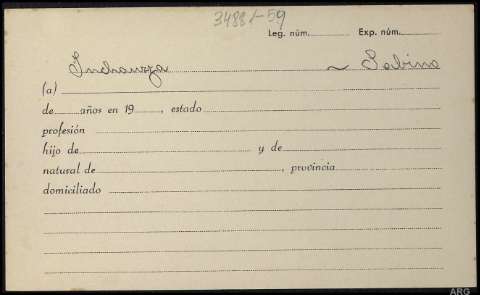 34881-59
Leg. núm. Exp. núm.
Indrauzga ~ Sabino
(a)
de años en 19 , estado
profesión
hijo de y de
natural de , provincia
domiciliado
ARG